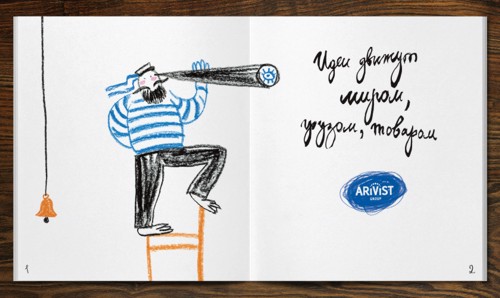 Идеи движут
миром,
грузом, товаром
ARiViST
GROUP
1
2